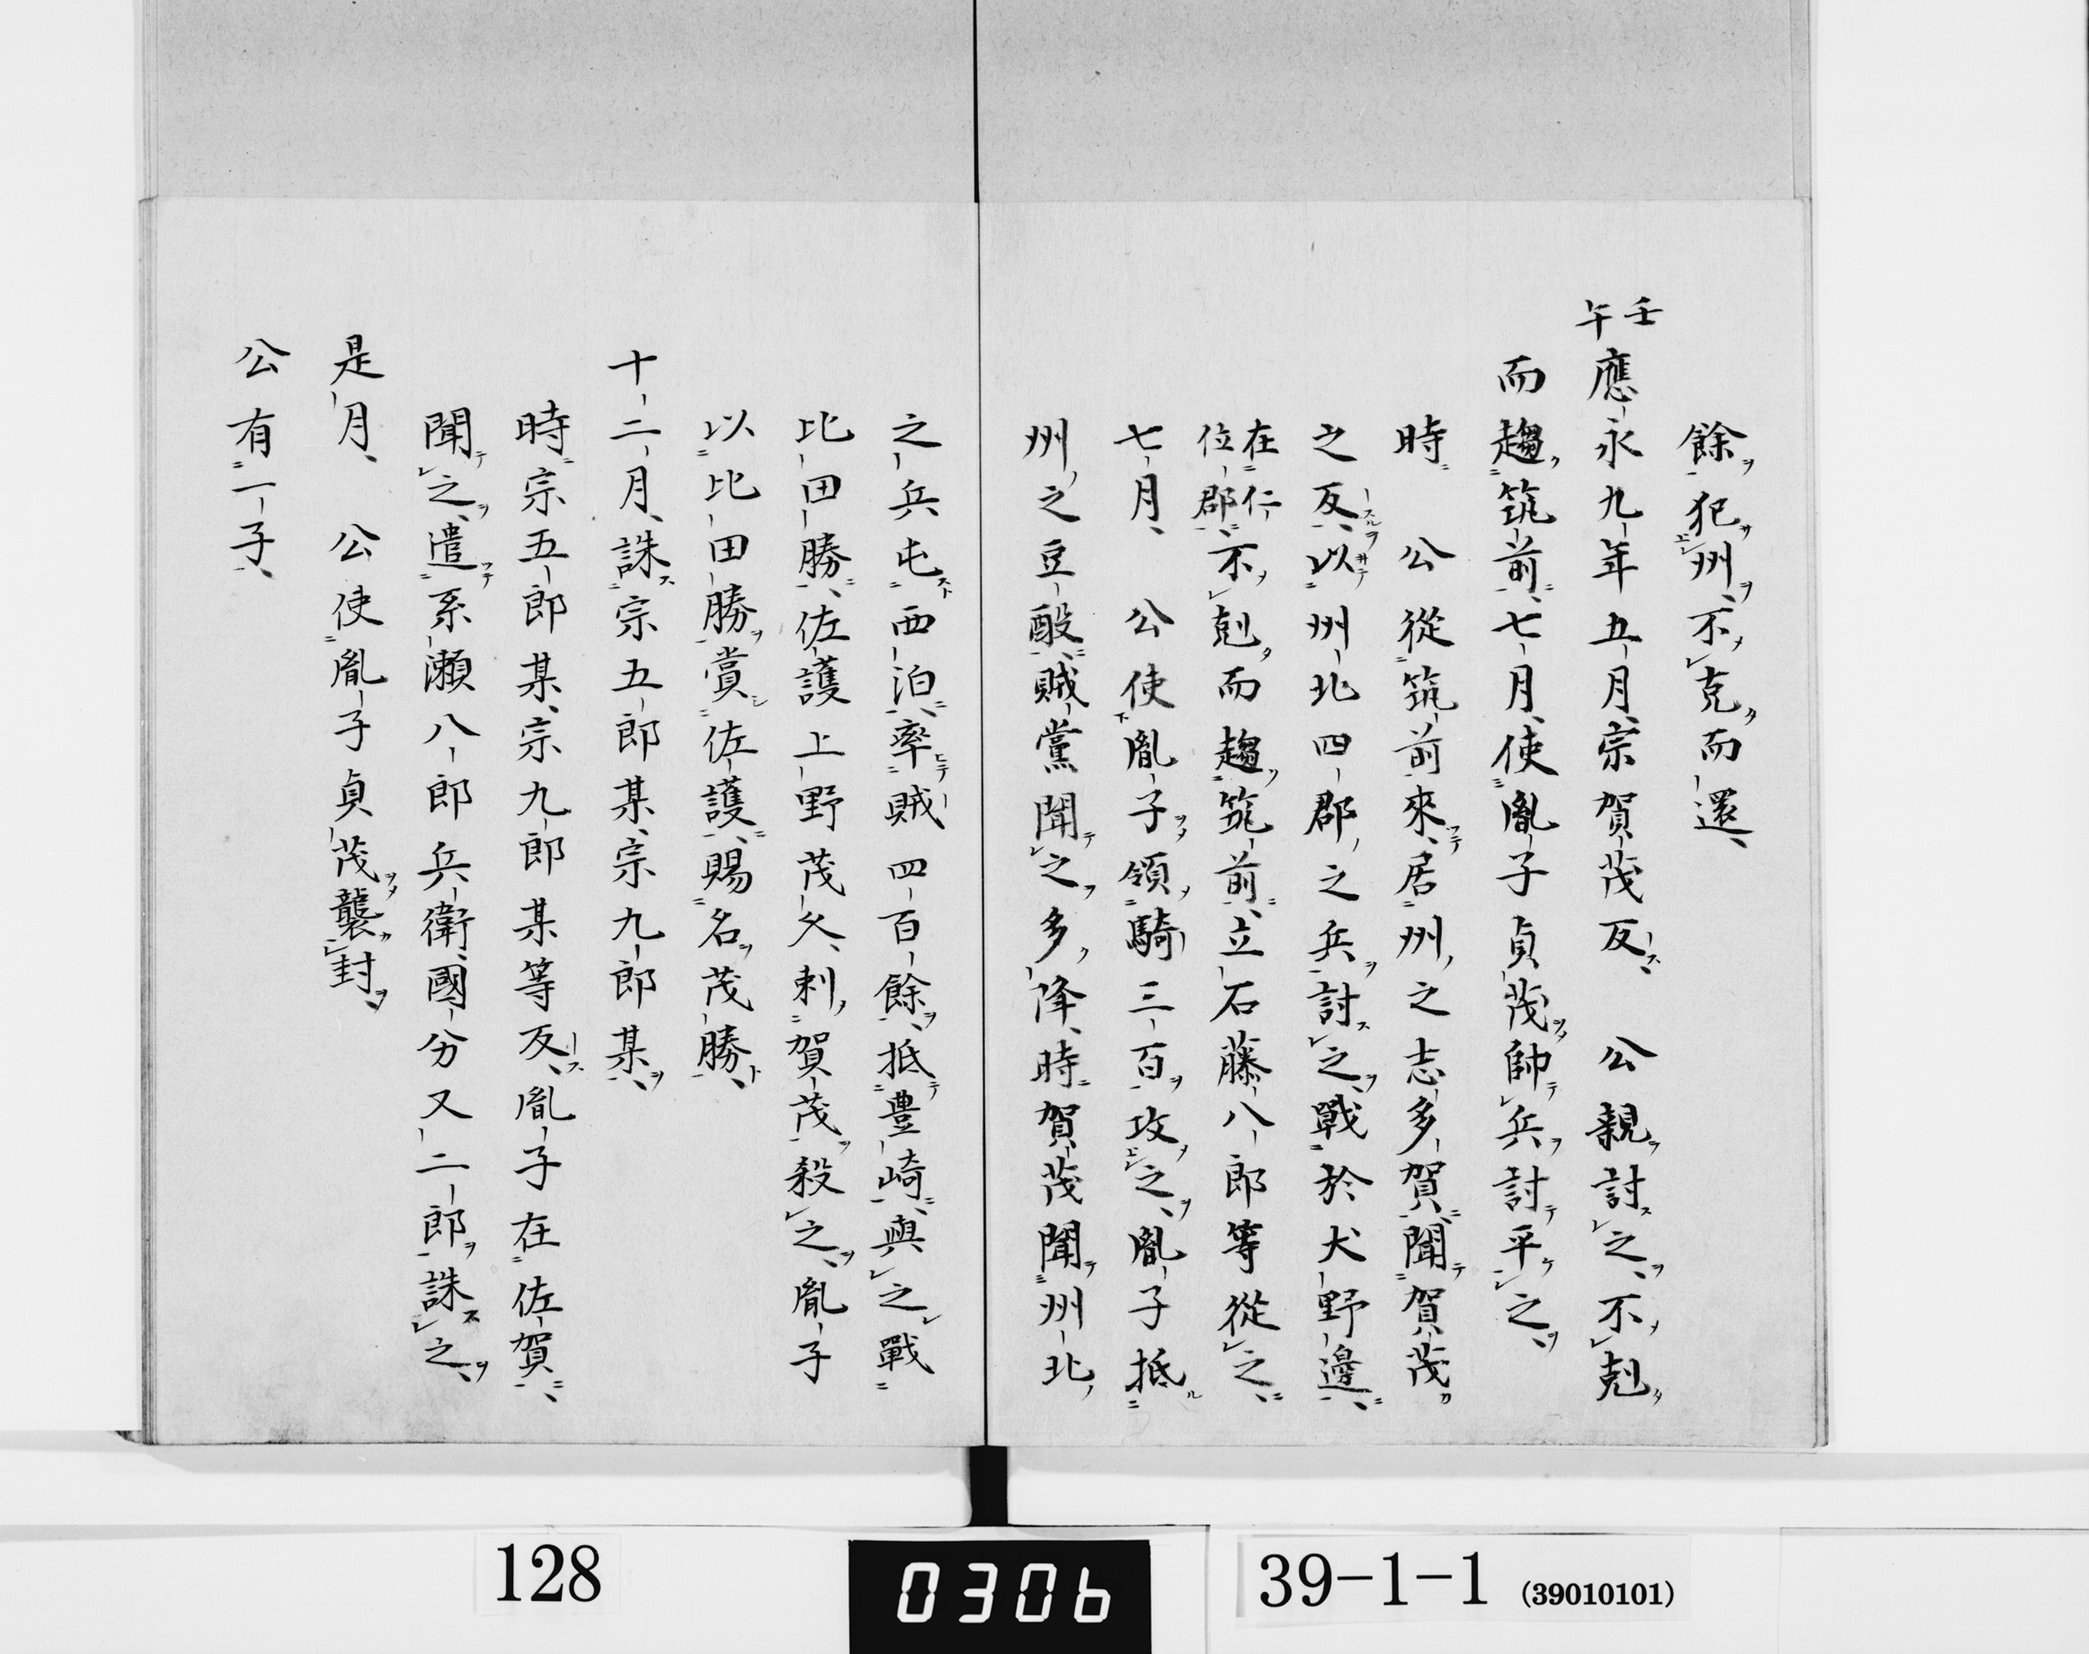 餘犯州不克而還
壬午
應永九年五月宗賀茂反 公親討之不剋
而趨筑前七月使胤子貞茂帥兵討平之
時 公從筑前來居州之志多賀聞賀茂
之反以州北四郡之兵討之戰於犬野邊
在仁位郡不剋而趨筑前立石藤八郎等從之
七月 公使胤子領騎三百攻之胤子抵
州之豆酘賊黨聞之多降時賀茂聞州北
之兵屯西泊率賊四百餘抵豊崎與之戰
比田勝佐護上野茂久刺賀茂殺之胤子
以比田勝賞佐護賜名茂勝
十二月誅宗五郎某宗九郎某
時宗五郎某宗九郎某等反胤子在佐賀
聞之遣系瀬八郎兵衛國分又二郎誅之
是月 公使胤子貞茂襲封
公有一子
128
0306
39-1-1 (39010101)